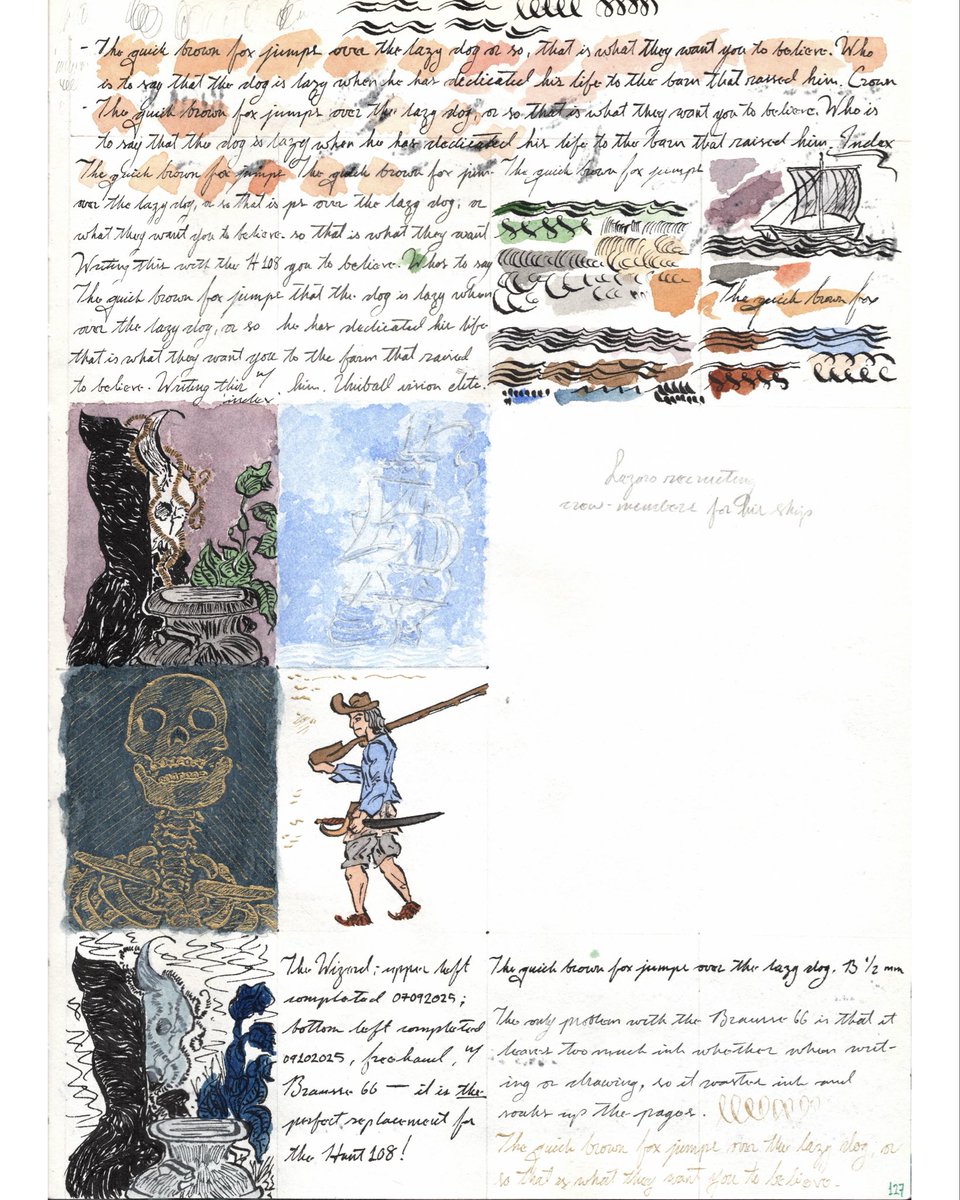 - The quick brown fox jumps over the lazy dog or so, that is what they want you to believe. Who
is to say that the dog is lazy when he has dedicated his life to the barn that raised him. Crown
- The quick brown fox jumps over the lazy dog, or so that is what they want you to believe. Who is
to say that the dog is lazy when he has dedicated his life to the barn that raised him. Index
The quick brown fox jumps
over the lazy dog, or so that is
what they want you to believe.
Writing this with the H108
The quick brown fox jumps
over the lazy dog, or so
that is what they want you
to believe. Writing this w/
index.
The quick brown fox jum-
ps over the lazy dog, or
so that is what they want
you to believe. Who's to say
that the dog is lazy when
he has dedicated his life
to the farm that raised
him. Uniball vision elite.
The quick brown fox jumps
The quick brown fox
Lazaro recruiting
crew-members for his ship
The Wizard; upper left
completed 07092025;
bottom left completed
09202025, freehand, w/
Brause 66 — it is the
perfect replacement for
the Hunt 108!
The quick brown fox jumps over the lazy dog. B 1/2 mm
The only problem with the Brause 66 is that it
leaves too much ink whether when writ-
ing or drawing, so it wastes ink and
soaks up the pages.
The quick brown fox jumps over the lazy dog, or
so that is what they want you to believe.
127